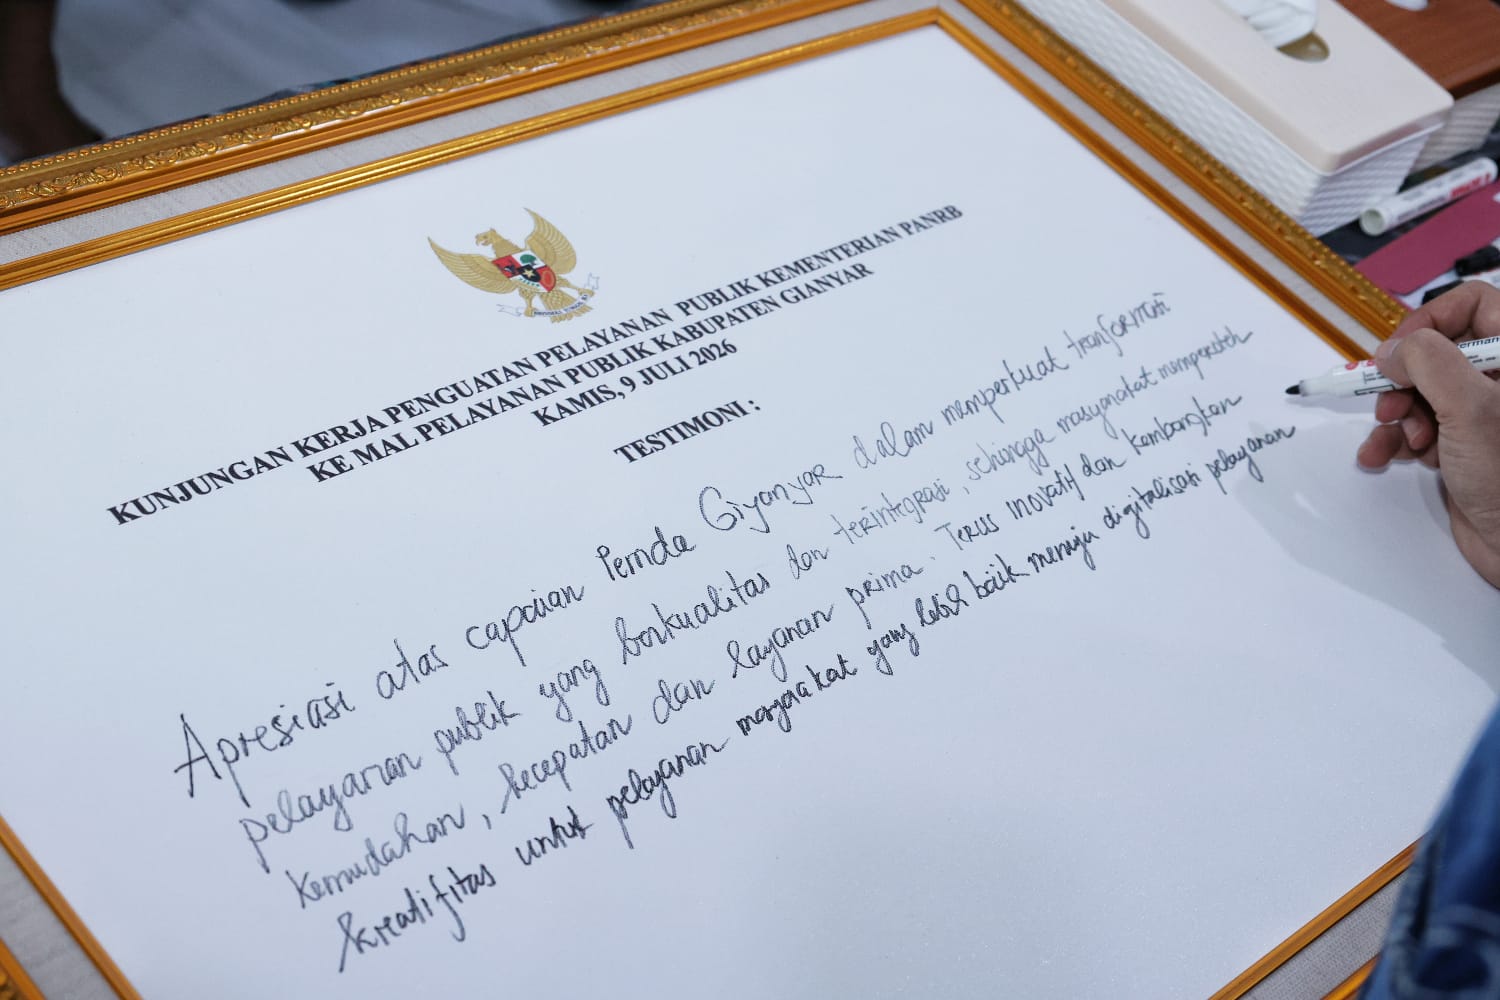 KUNJUNGAN KERJA PENGUATAN PELAYANAN PUBLIK KEMENTERIAN PANRB
KE MAL PELAYANAN PUBLIK KABUPATEN GIANYAR
KAMIS, 9 JULI 2026
TESTIMONI :
Apresiasi atas capaian Pemda Giyanyar dalam memperkuat tranformasi
pelayanan publik yang berkualitas dan terintegrasi, sehingga masyarakat memperoleh
kemudahan, kecepatan dan layanan prima. Terus inovatif dan kembangkan
kreatifitas untuk pelayanan masyarakat yang lebih baik menuju digitalisasi pelayanan
erman